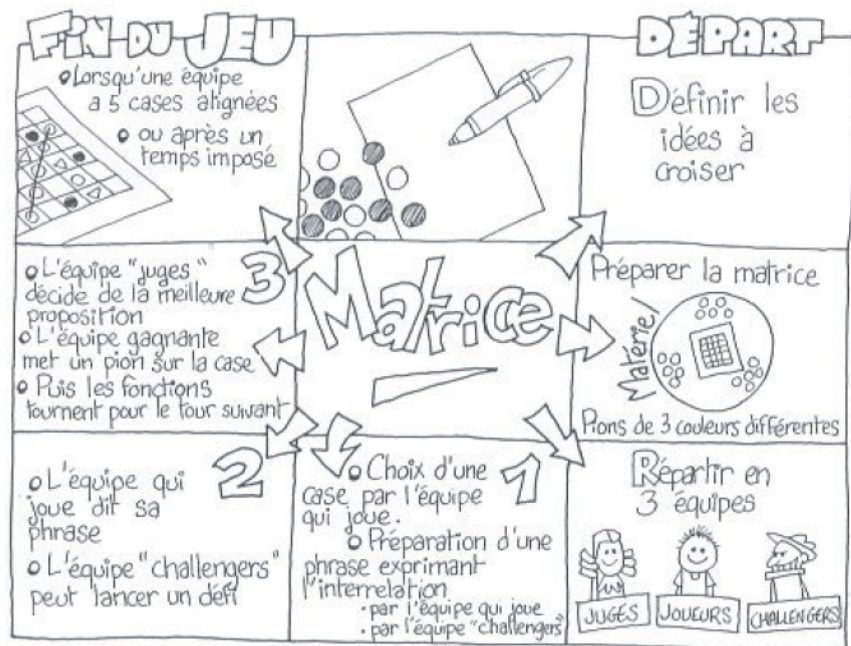 FIN DU JEU
Lorsqu'une équipe
a 5 cases alignées
ou après un
temps imposé
DÉPART
Définir les
idées à
croiser
Matrice
Préparer la matrice
Matériel
Pions de 3 couleurs différentes
Répartir en
3 équipes
JUGES
JOUEURS
CHALLENGERS
1
Choix d'une
case par l'équipe
qui joue.
Préparation d'une
phrase exprimant
l'interrelation
• par l'équipe qui joue
• par l'équipe "challengers"
2
L'équipe qui
joue dit sa
phrase
L'équipe "challengers"
peut lancer un défi
3
L'équipe "juges"
décide de la meilleure
proposition
L'équipe gagnante
met un pion sur la case
Puis les fonctions
tournent pour le tour suivant